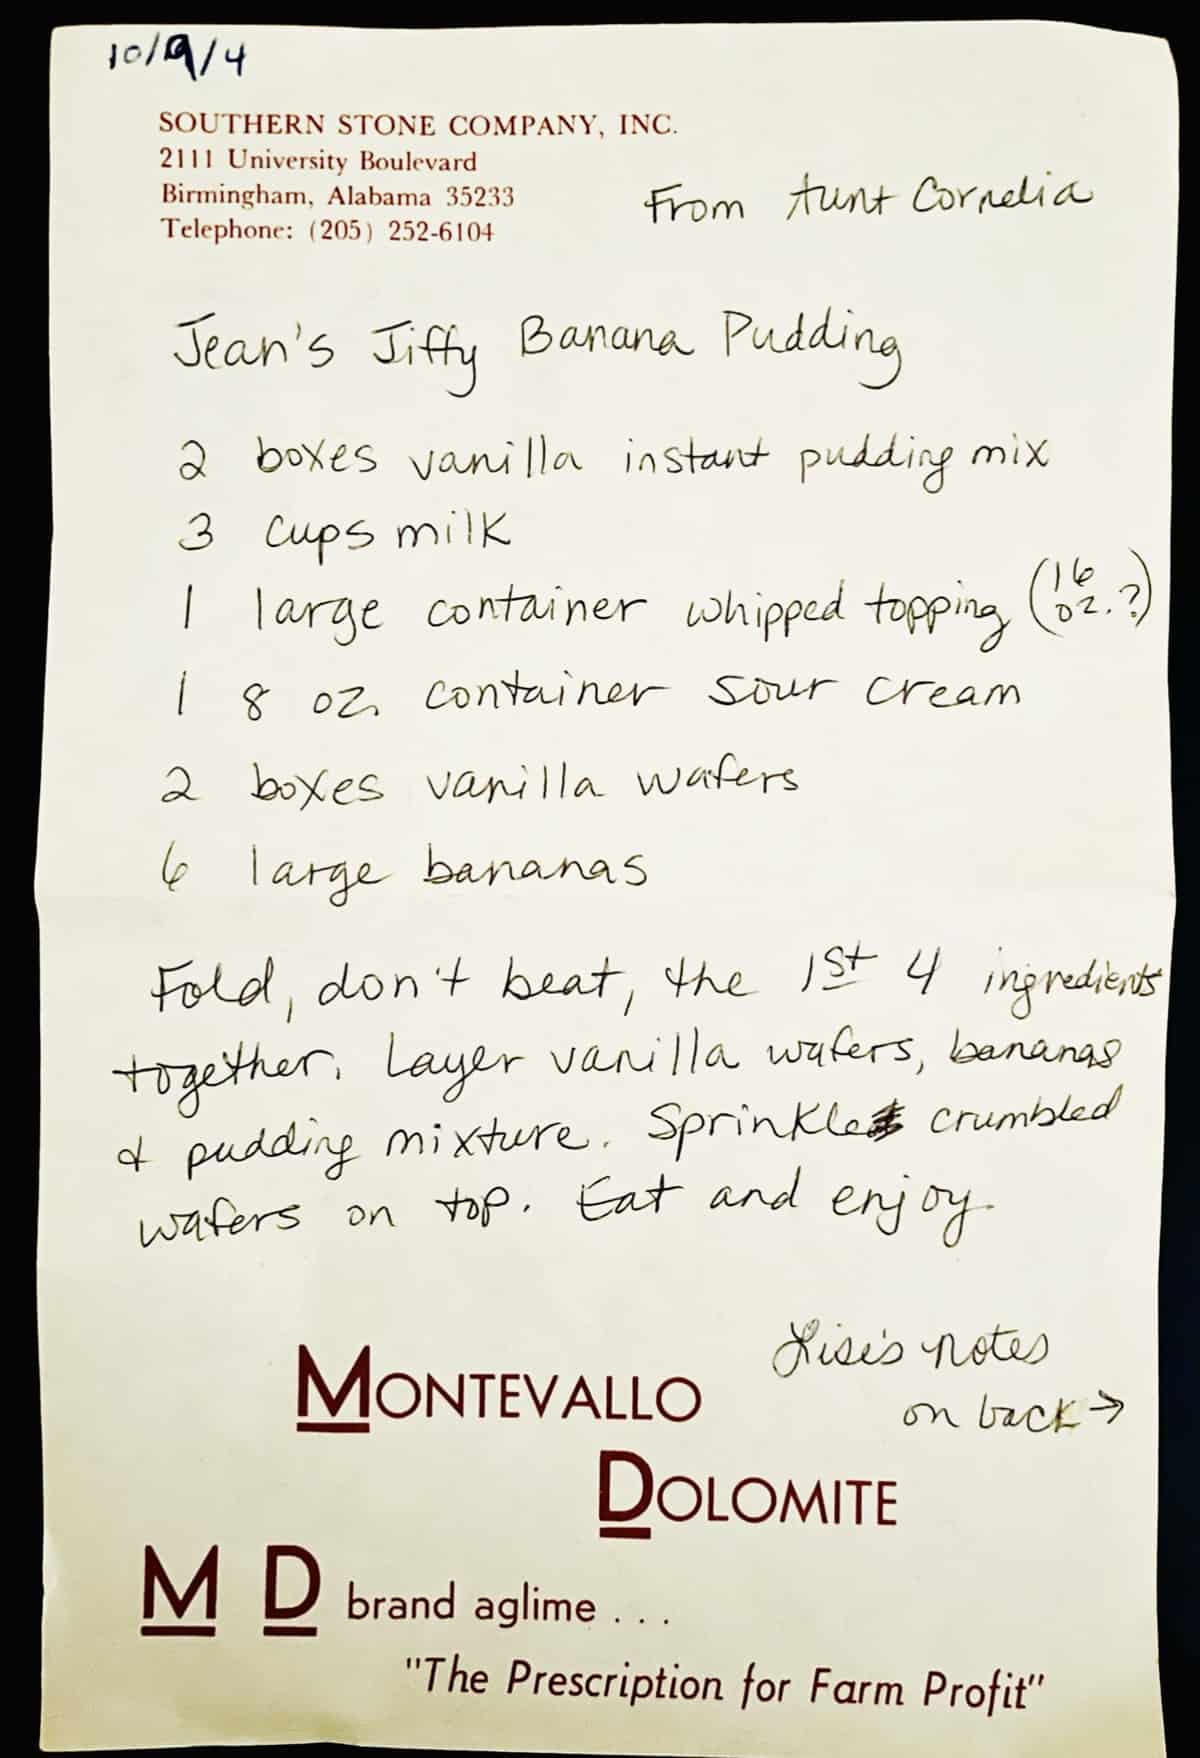 10/9/4
SOUTHERN STONE COMPANY, INC.
2111 University Boulevard
Birmingham, Alabama 35233
Telephone: (205) 252-6104
From Aunt Cornelia
Jean's Jiffy Banana Pudding
2 boxes vanilla instant pudding mix
3 cups milk
1 large container whipped topping (16 oz.?)
1 8 oz. container sour cream
2 boxes vanilla wafers
6 large bananas
Fold, don't beat, the 1st 4 ingredients
together. Layer vanilla wafers, bananas
& pudding mixture. Sprinkle crumbled
wafers on top. Eat and enjoy.
Lise's notes
on back →
MONTEVALLO
DOLOMITE
M D brand aglime...
"The Prescription for Farm Profit"